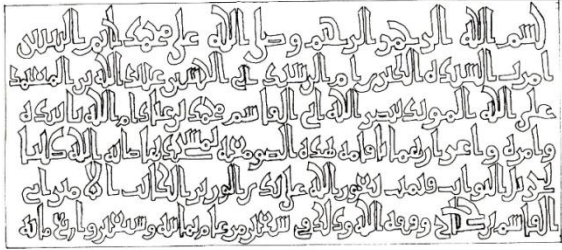 بسم الله الرحمن الرحيم وصلى الله على محمد خاتم النبيين
امرت السيدة الكبرى ام الرشيد ابي الحسين عبيد الله بن المعتمد
على الله المؤيد بنصر الله ابي القاسم محمد بن عباد ادام الله تاييده
وامره واعزازهما باقامة هذه الصومعة بمسجدها صانه الله طلبا
لجزيل الثواب فتمت بعون الله على يدي الوزير الكاتب ابي
القاسم بن حجاج وفقه الله وذلك في شهر من عام ثمانية وسبعين واربع مائة